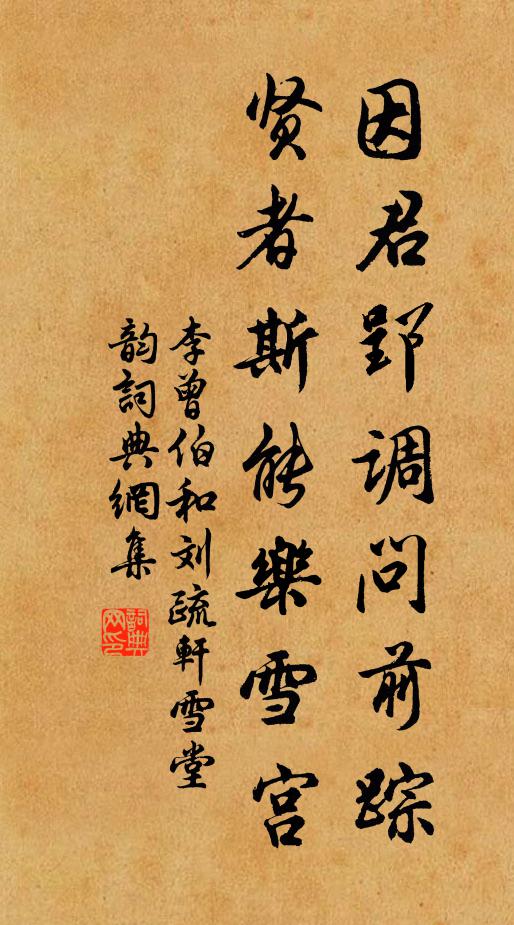 因君郢调问前踪
贤者斯能樂雪宫
李曾伯和刘疏軒雪堂
韵詞典網集
詞典网印